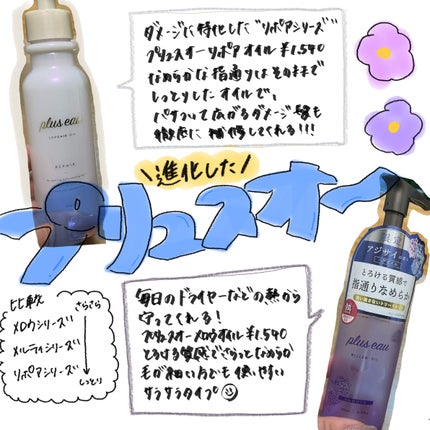 ダメージに特化した"リポアシリーズ"
プリュスオーリポアオイル ¥1.540
なめらかな指通りはそのままで
しっとりしたオイルで、
パサついて広がるダメージ髪も
徹底に補修してくれる!!!
plus eau
REPAIR
\進化した/
プリュスオー
比較
さらさら
メロウシリーズ
メルティシリーズ
リポアシリーズ
しっとり
毎日のドライヤーなどの熱から
守ってくれる!
プリュスオーメロウオイル ¥1.540
とろける質感でさらっとなめらか
毛が細い方でも使いやすい
サラサラタイプ
限定
アジサイ
とろける質感で
指通りなめらか
plus eau
MELLOW OIL